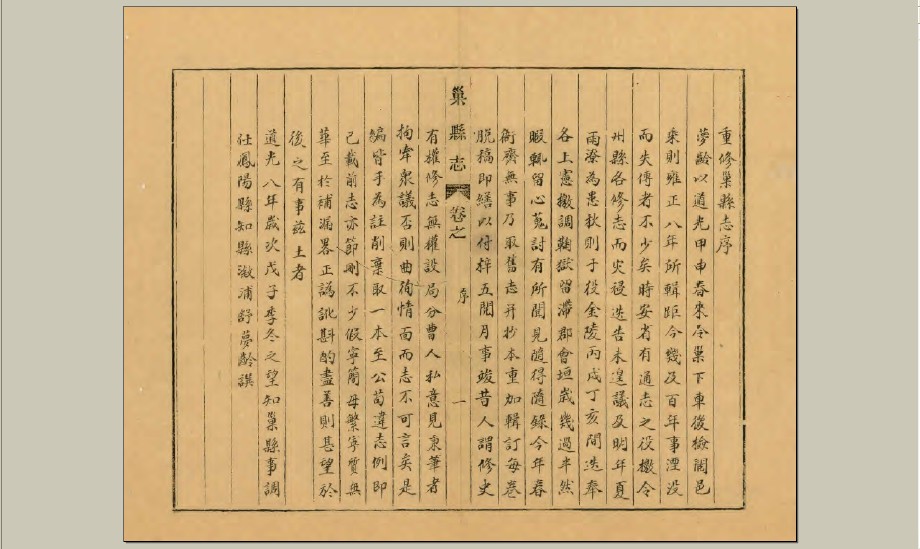 重修巢縣志序
夢齡以道光甲申春來令巢下車後檢閱邑
乘則雍正八年所輯距今幾及百年事湮沒
而失傳者不少矣時安省有通志之役檄令
州縣各修志而灾祲迭告未遑議及明年夏
雨潦為患秋則于役金陵丙戌丁亥間迭奉
各上憲檄調鞫獄留滯郡會垣歲幾過半然
暇輒留心蒐討有所聞見隨得隨錄今年春
衙齋無事乃取舊志并抄本重加輯訂每卷
脫稿即繕以付梓五閱月事竣昔人謂修史
巢縣志 卷之 序 一
有權修志無權設局分曹人私意見秉筆者
拘牽衆議否則曲徇情面而志不可言矣是
編皆手為註削棄取一本至公苟違志例即
已載前志亦節刪不少假寧簡毋繁寧質無
華至於補漏畧正譌訛斟酌盡善則甚望於
後之有事兹土者
道光八年歲次戊子季冬之望知巢縣事調
任鳳陽縣知縣溆浦舒夢齡譔